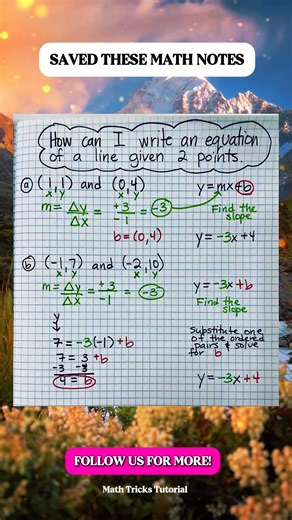 SAVED THESE MATH NOTES
How can I write an equation
of a line given 2 points.
a) (1,1) and (0,4)
x y x y
y = mx + b
m = Δy/Δx = +3/-1 = -3
Find the
slope
b = (0,4)
y = -3x + 4
b) (-1,7) and (-2,10)
x y x y
y = -3x + b
m = Δy/Δx = +3/-1 = -3
Find the
slope
y
7 = -3(-1) + b
Substitute one
of the ordered
pairs & solve
for b
7 = 3 + b
-3 -3
4 = b
y = -3x + 4
FOLLOW US FOR MORE!
Math Tricks Tutorial